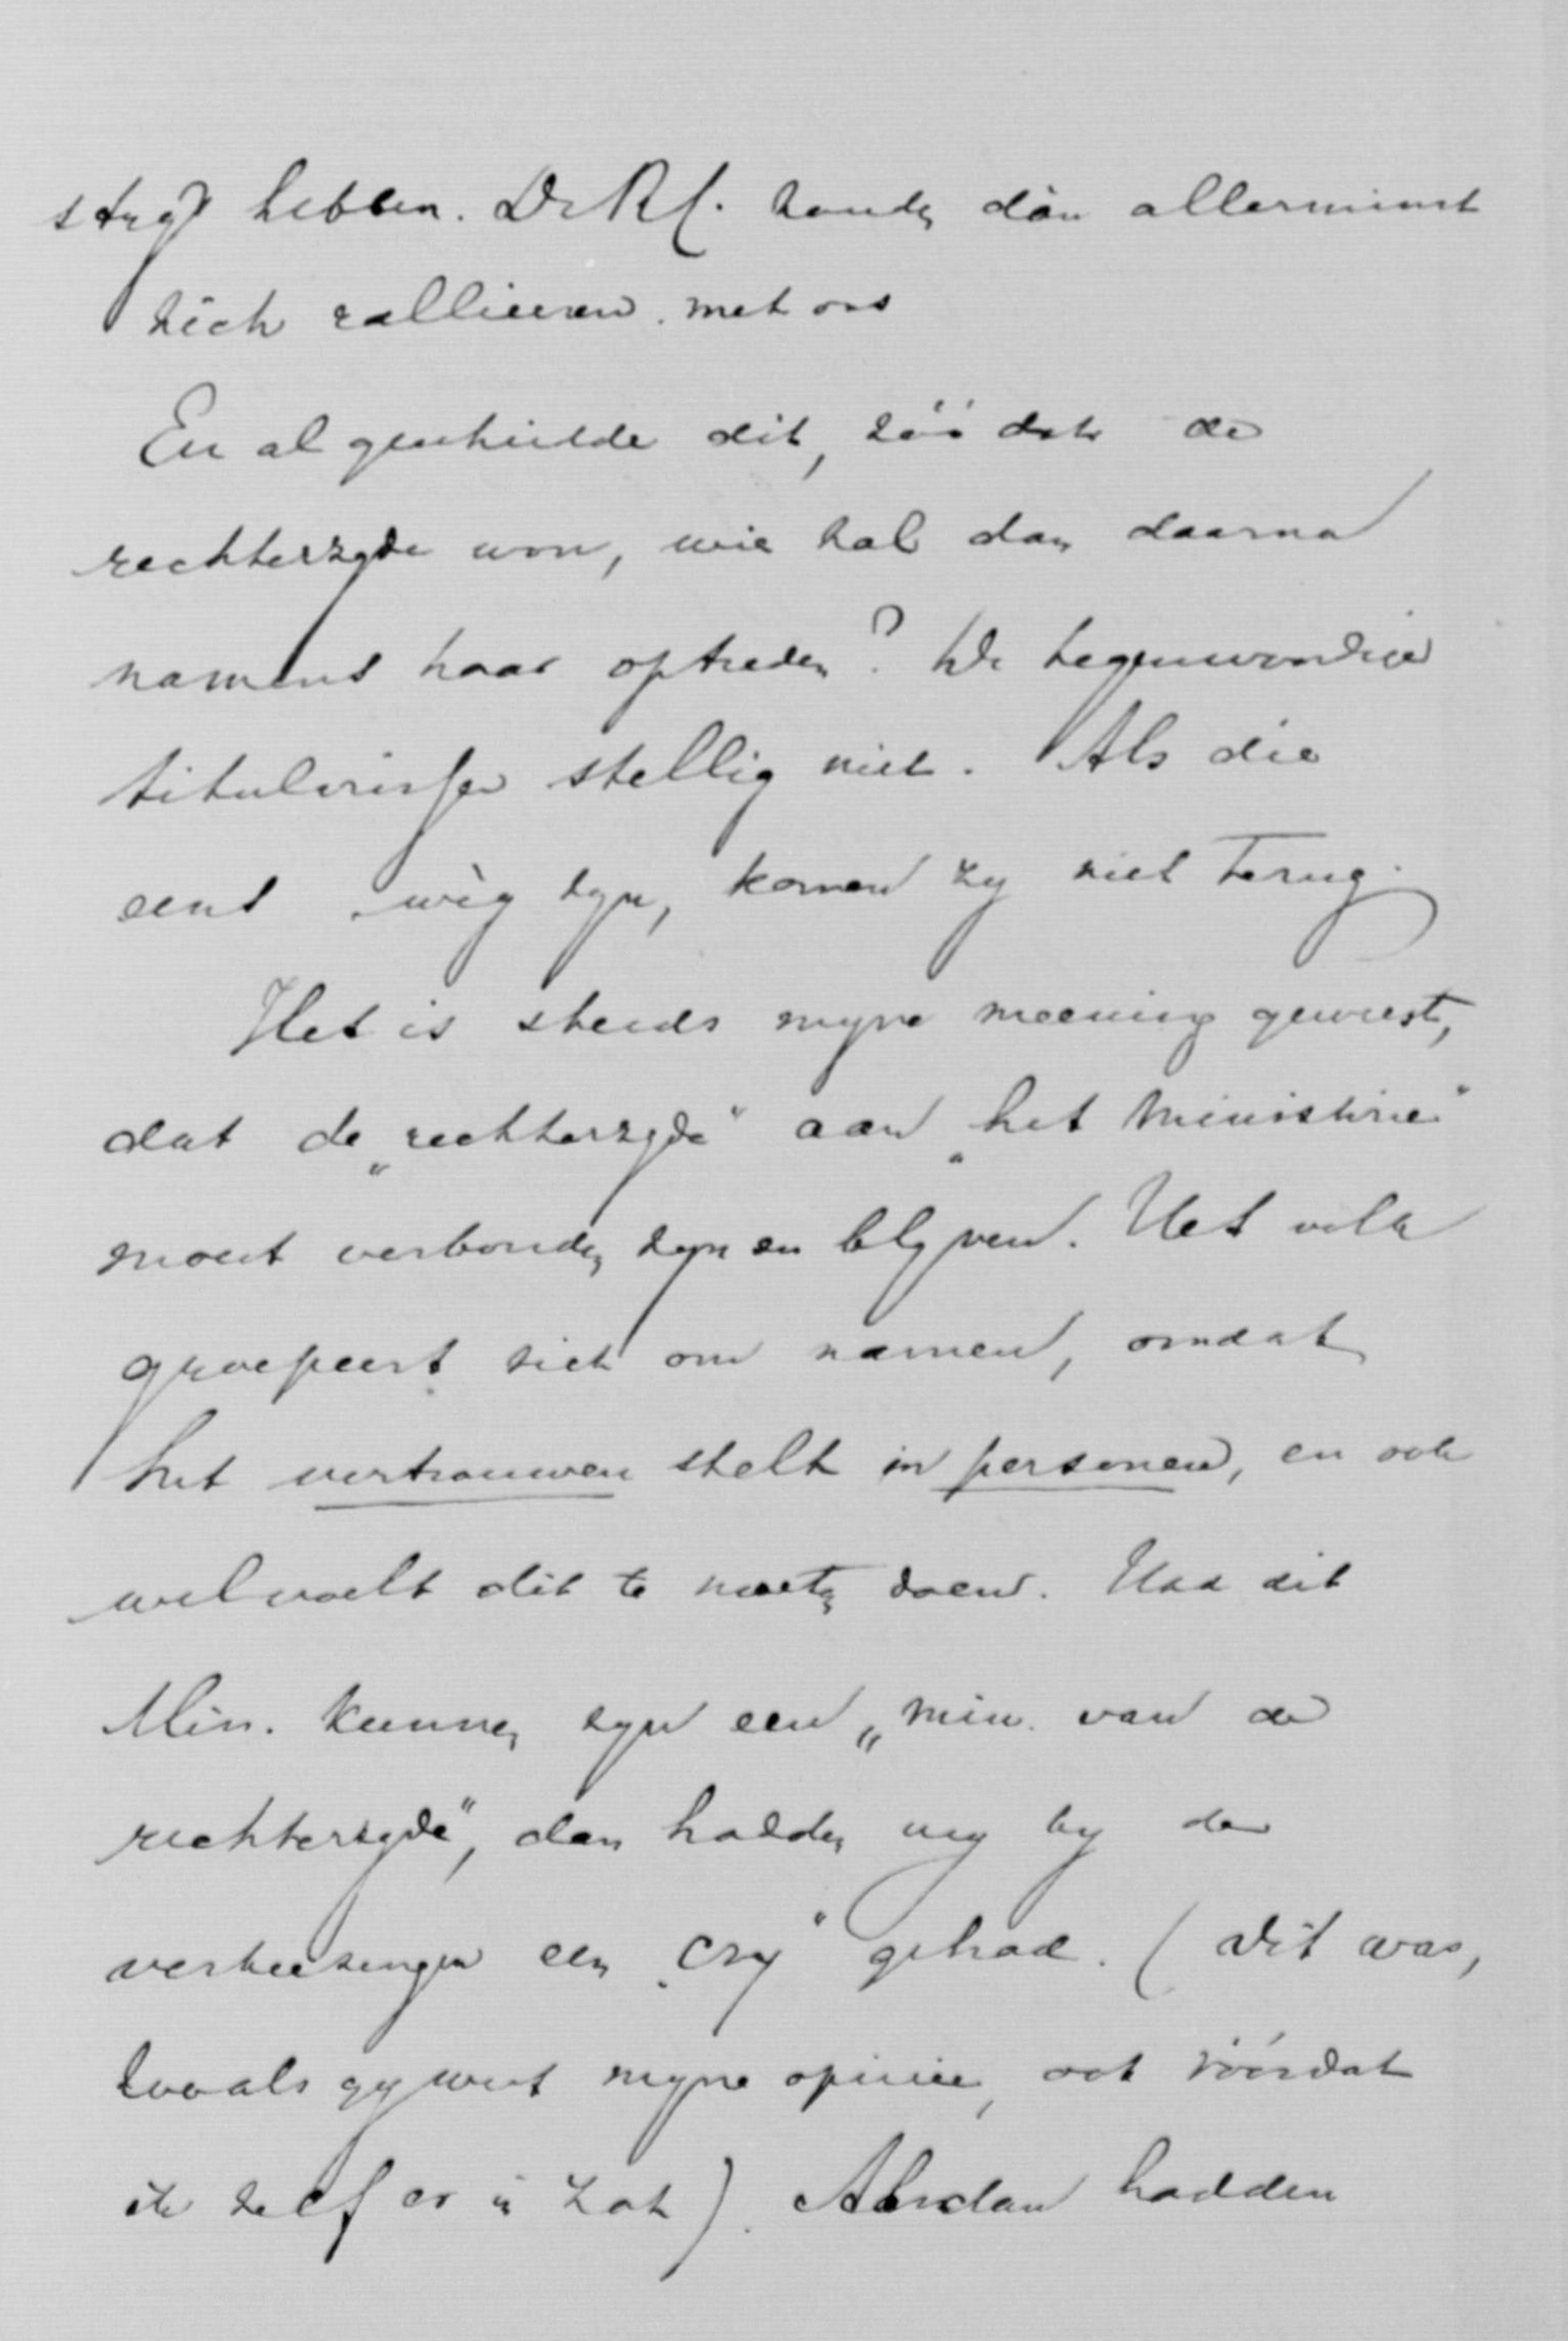 stryd hebben. De RK. zouden dàn allerminst
zich rallieeren met ons
En al geschiedde dit, zóó dat de
rechterzyde won, wie zal dan daarna
namens haar optreden? De tegenwoordige
titularissen stellig niet. Als die
eens wèg zyn, komen zy niet terug.
Het is steeds myne meening geweest,
dat de „rechterzyde” aan „het ministerie”
moest verbonden zyn en blyven. Het volk
groepeert zich om namen, omdat
het vertrouwen stelt in personen, en ook
wel voelt dit te moeten doen. Had dit
Min. kunnen zyn een „min. van de
rechterzyde”, dan hadden wy by de
verkiezingen een „cry” gehad. (Dit was,
zooals gy weet myne opinie, ook vóórdat
ik zelf er in zat). Alsdan hadden